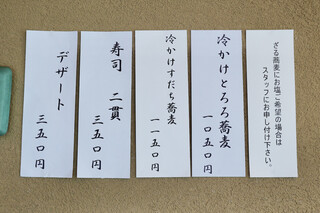 ざる蕎麦にお塩ご希望の場合は
スタッフにお申し付け下さい。
冷かけとろろ蕎麦
一〇五〇円
冷かけすだち蕎麦
一一五〇円
寿司 二貫
三五〇円
デザート
三五〇円